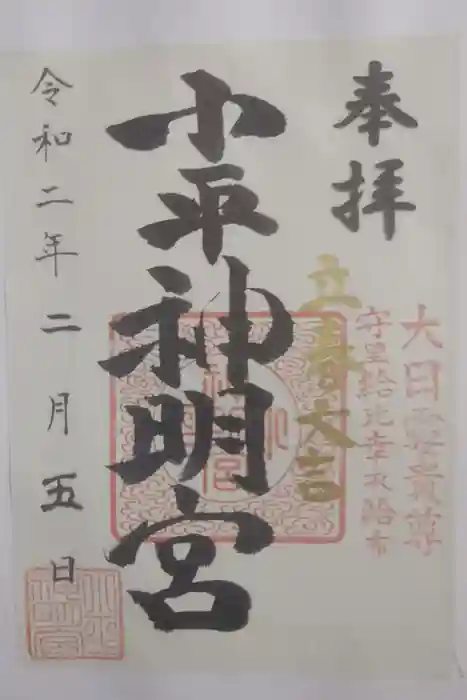 奉拝
大日孁貴尊
守里給比幸反給布
立春大吉
小平神明宮
令和二年二月五日